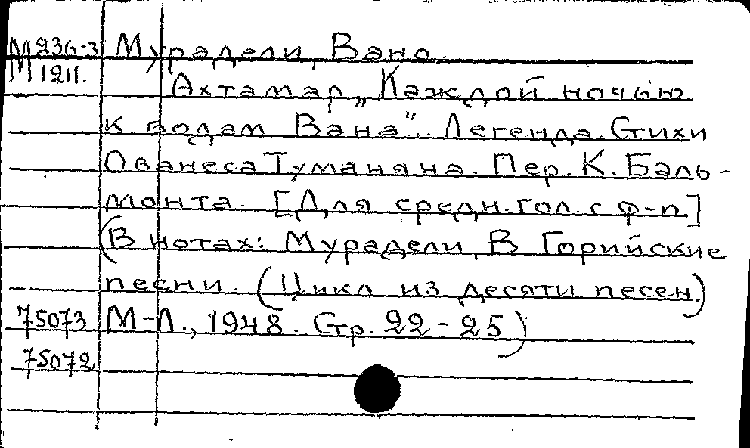 М 236-3 Мурадели, Вано.
М 1211. Ахтамар „Каждой ночью
к водам Вана". Легенда. Стихи
Ованеса Туманяна. Пер. К. Баль-
монта. [Для средн. гол. с ф-п.]
(В нотах: Мурадели, В. Горийские
песни. (Цикл из десяти песен.)
75073 М-Л., 1948. Стр. 22-25)
75072